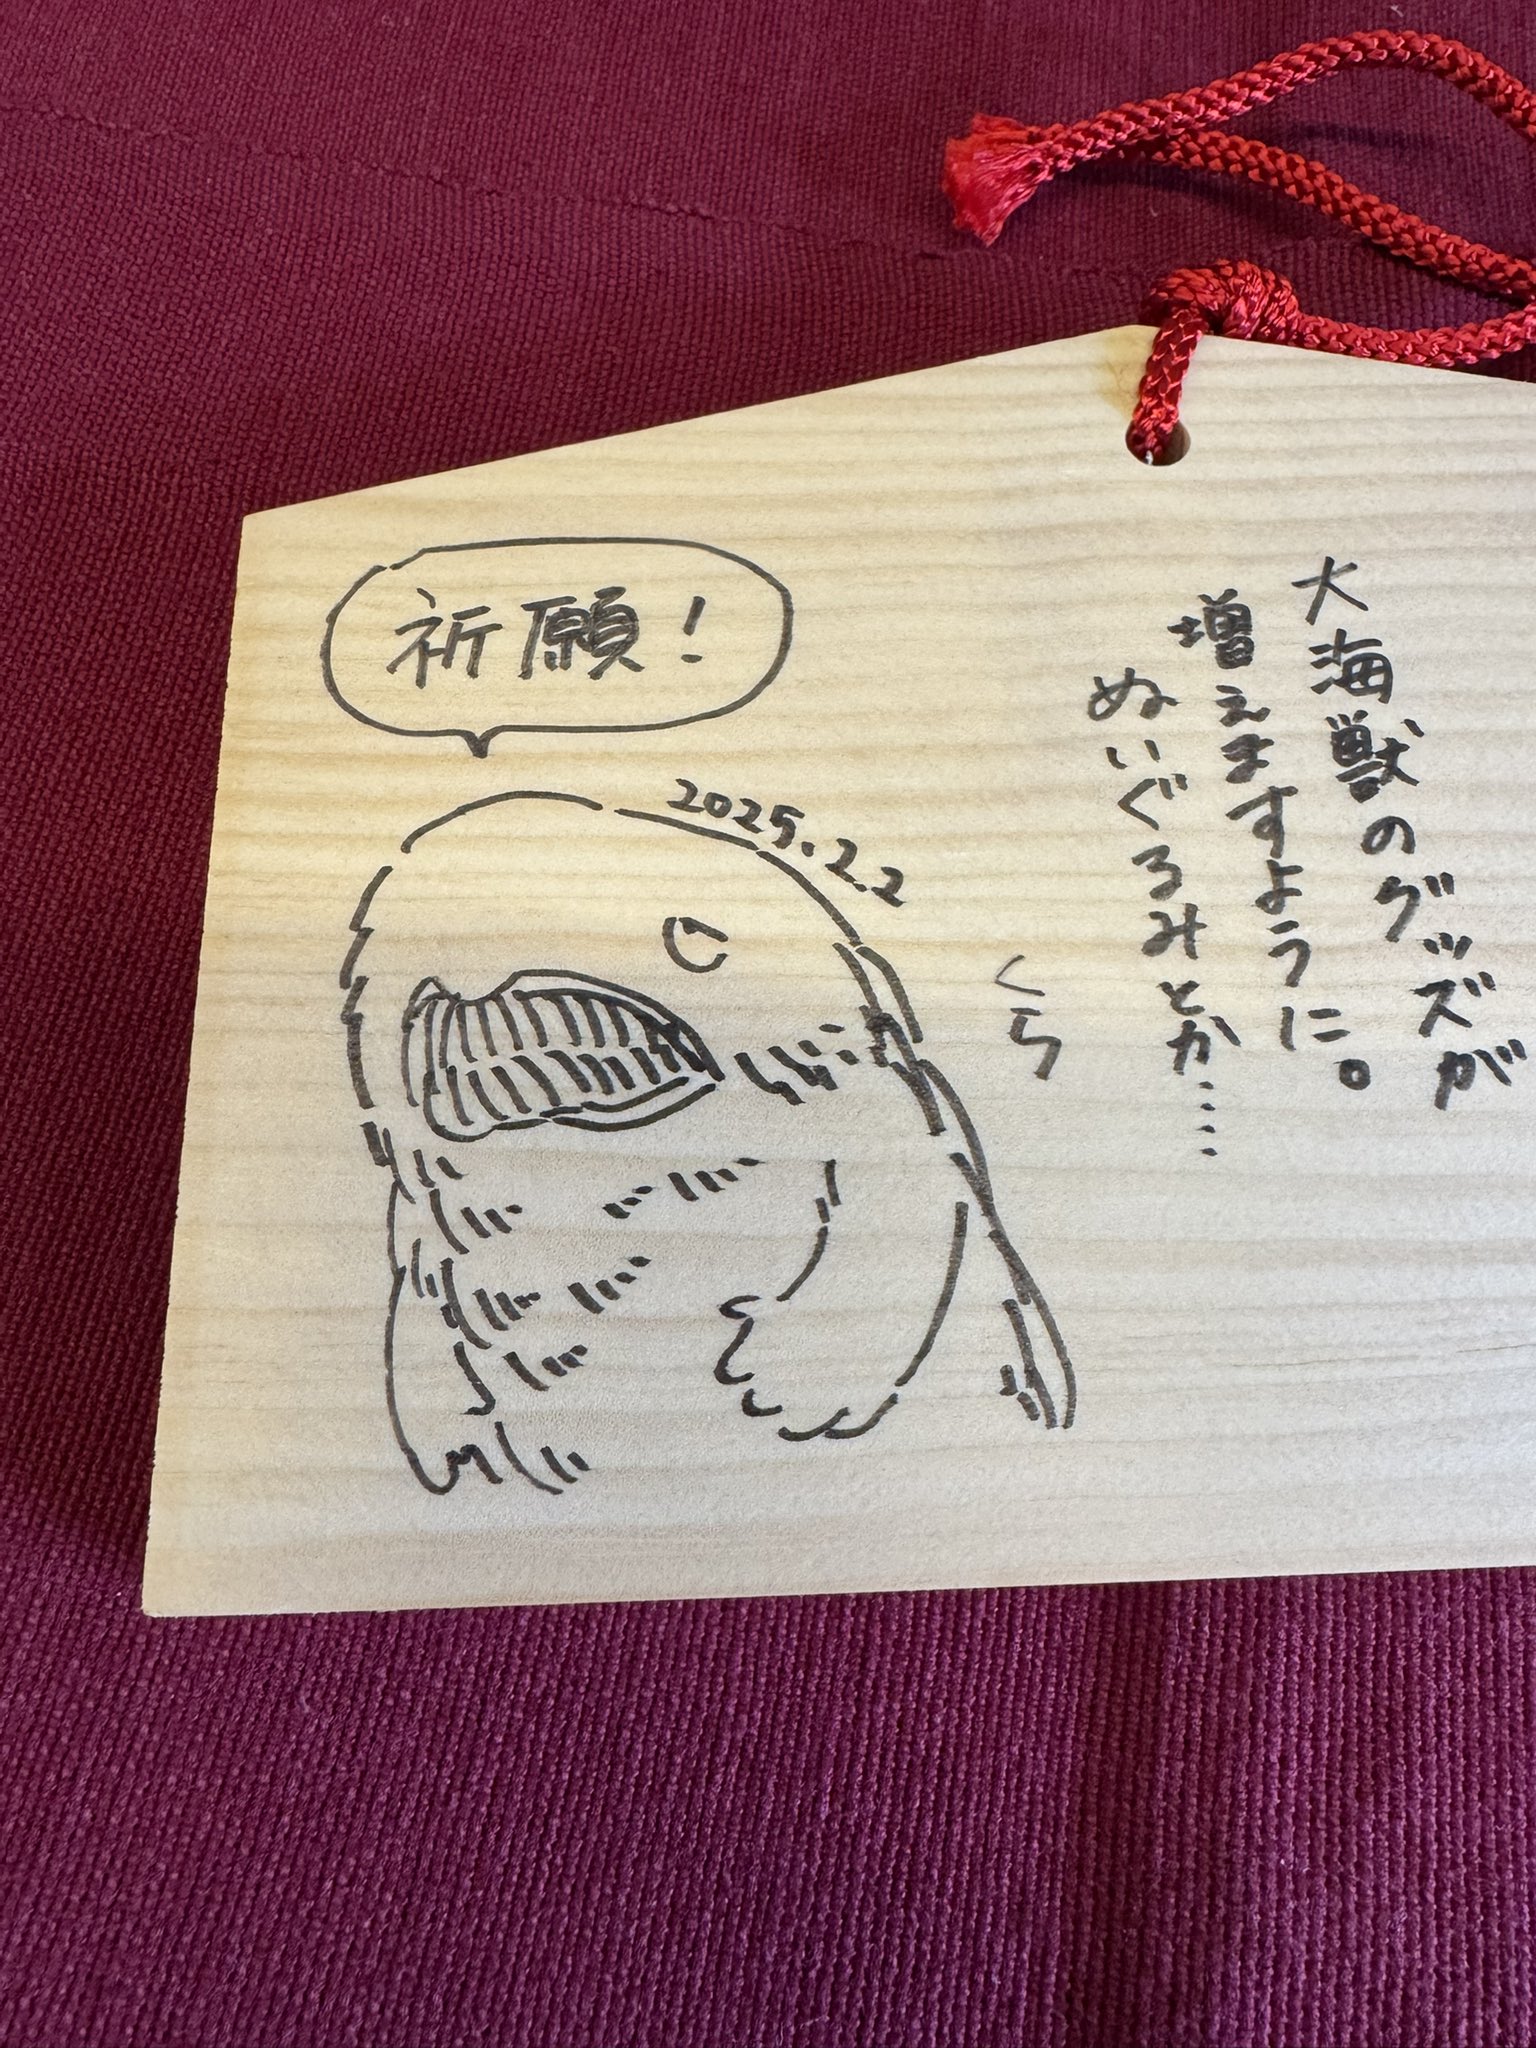 大海獣のグッズが
増えますように。
ぬいぐるみとか……
くら
祈願！
2025.2.2